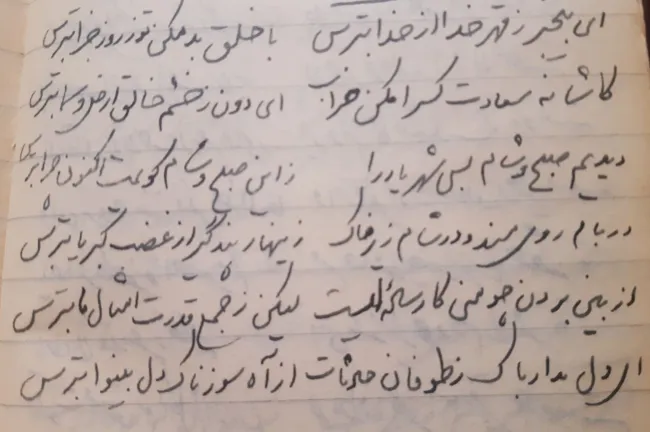 ای بیخبر ز قهر خدا از خدا بترس با خلق بد مکن تو ز روز جزا بترس
کاشانه سعادت کس را مکن خراب ای دون ز خشم خالق ارض و سما بترس
دیدیم صبح و شام بسی شهریار را زاین صبح و شام گویمت اکنون
در بام روی مسند و در شام زیر خاک زینهار پند گیر از غضب کبریا بترس
از بین بردن چو منی کار ساله نیست لیکن ز جمع قدرت امثال ما بترس
ای دل مدار باک ز طوفان حادثات از آه سوزناک دل بینوا بترس